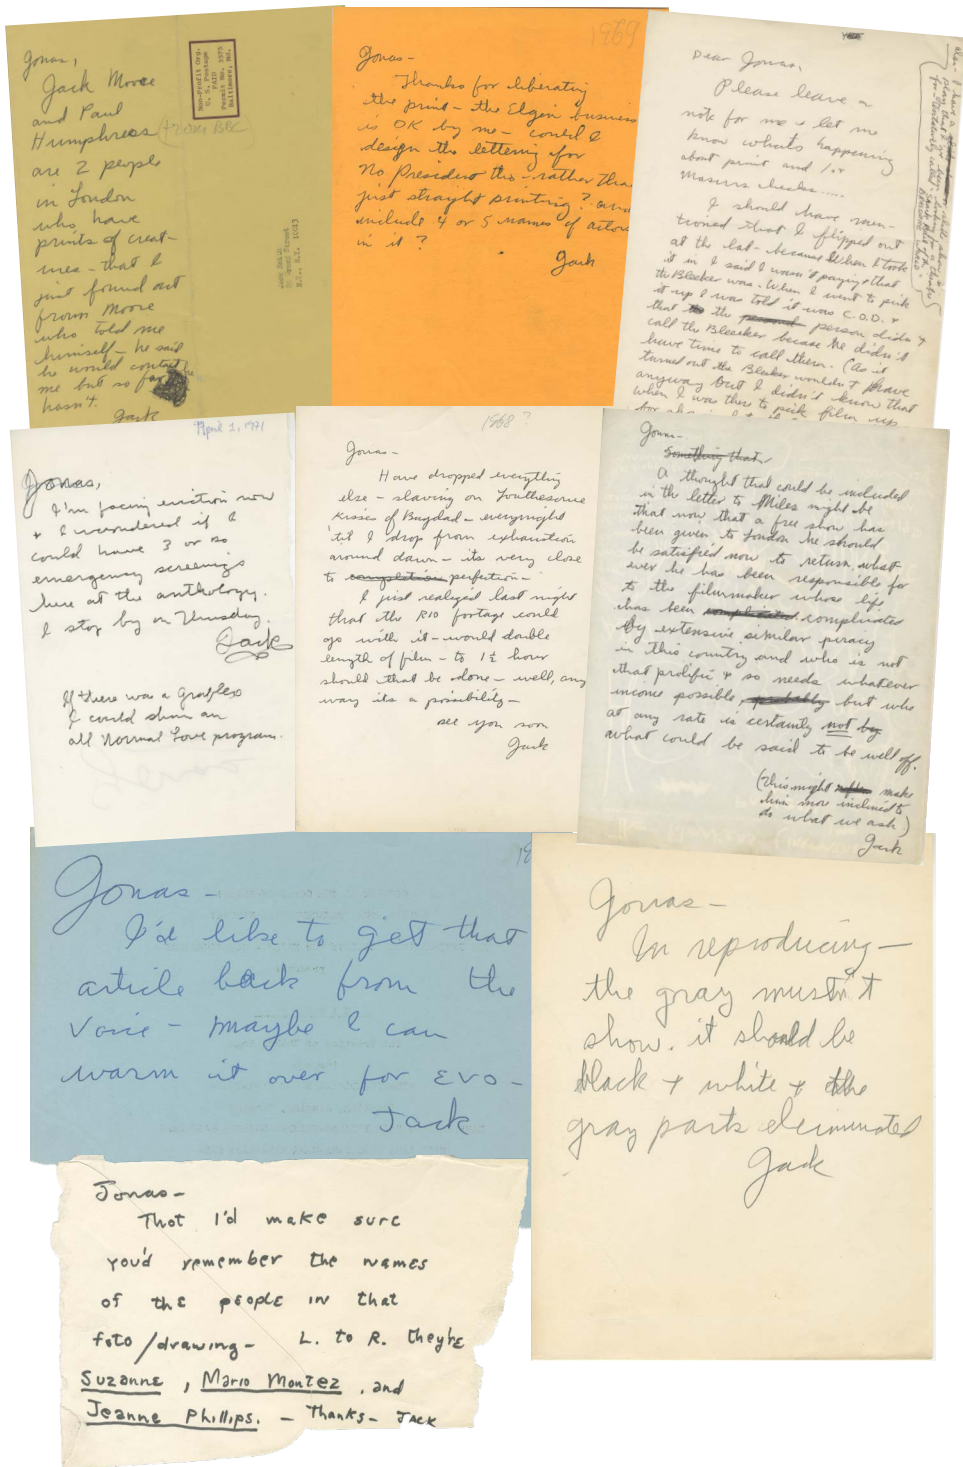 Jonas,
Jack Moore
and Paul
Humphress (from BBC)
are 2 people
in London
who have
prints of creat-
ures - that I
just found out
from Moore
who told me
himself - he said
he would contact
me but so far he
hasn't.
Jack
Non-Profit Org.
U. S. Postage
PAID
Permit No. 3573
Baltimore, Md.
Jack Smith
N.Y., N.Y. 10013
1969
Jonas -
Thanks for liberating
the print - the Elgin business
is OK by me - could I
design the lettering for
No President tho - rather than
just straight printing? and
include 4 or 5 names of actors
in it?
Jack
Dear Jonas,
Please leave a
note for me & let me
know whats happening
about print and / or
Masurs checks.....
I should have men-
tioned that I flipped out
at the lab - because when I took
it in I said I wasn't paying & that
the Bleeker was. When I went to pick
it up I was told it was C.O.D. &
that the person didn't
call the Bleecker because he didn't
have time to call them. (As it
turned out the Bleeker wouldn't have
anyway but I didn't know that
when I was there to pick film up
also - I have a
April 1, 1971
Jonas,
I'm facing eviction now
& I wondered if I
could have 3 or so
emergency screenings
here at the anthology.
I stop by on Thursday.
Jack
If there was a Graflex
I could show an
all Normal Love program.
1968?
Jonas -
Have dropped everything
else - slaving on Loutheserne
Kisses of Bagdad - everynight
'til I drop from exhaustion
around dawn - its very close
to completion perfection -
I just realized last night
that the RIO footage could
go with it - would double
length of film - to 1½ hour
should that be done - well, any
way its a possibility -
see you soon
Jack
Jonas -
Something that
A thought that could be included
in the letter to Miles might be
that now that a free show has
been given to London he should
be satisfied now to return what
ever he has been responsible for
to the filmmaker whose life
has been complicated complicated
by extensive similar piracy
in this country and who is not
that prolific & so needs whatever
income possible, probably but who
at any rate is certainly not by
what could be said to be well off.
(this might make
him more inclined to
do what we ask)
Jack
Jonas -
I'd like to get that
article back from the
Voice - maybe I can
warm it over for EVO -
Jack
Jonas -
In reproducing -
the gray mustn't
show. it should be
black & white & the
gray parts eliminated
Jack
Jonas -
That I'd make sure
you'd remember the names
of the people in that
foto/drawing - L. to R. they're
Suzanne, Mario Montez, and
Jeanne Phillips. - Thanks - Jack